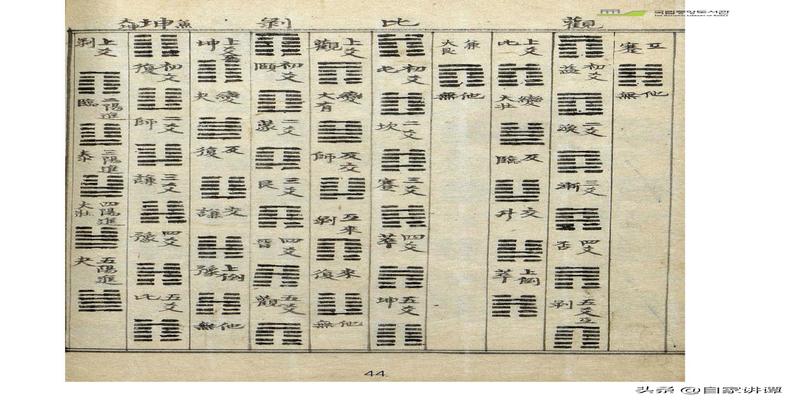 觀
比
剝
坤
互蹇
他無
初爻益
二爻渙
三爻漸
四爻否
五爻剝
上爻比
變大壯
反臨
交升
上倒萃
兼大艮
他無
初爻屯
二爻坎
三爻蹇
四爻萃
五爻坤
上爻觀
變大有
反交師
互來剝
來復
他無
初爻頤
二爻蒙
三爻艮
四爻晉
五爻觀
上爻坤
變夬
反復
交謙
上倒豫
他無
初爻復
二爻師
三爻謙
四爻豫
五爻比
上爻剝
二陽進臨
三陽進泰
四陽進大壯
五陽進夬
44
국립중앙도서관
头条 @自家讲谭